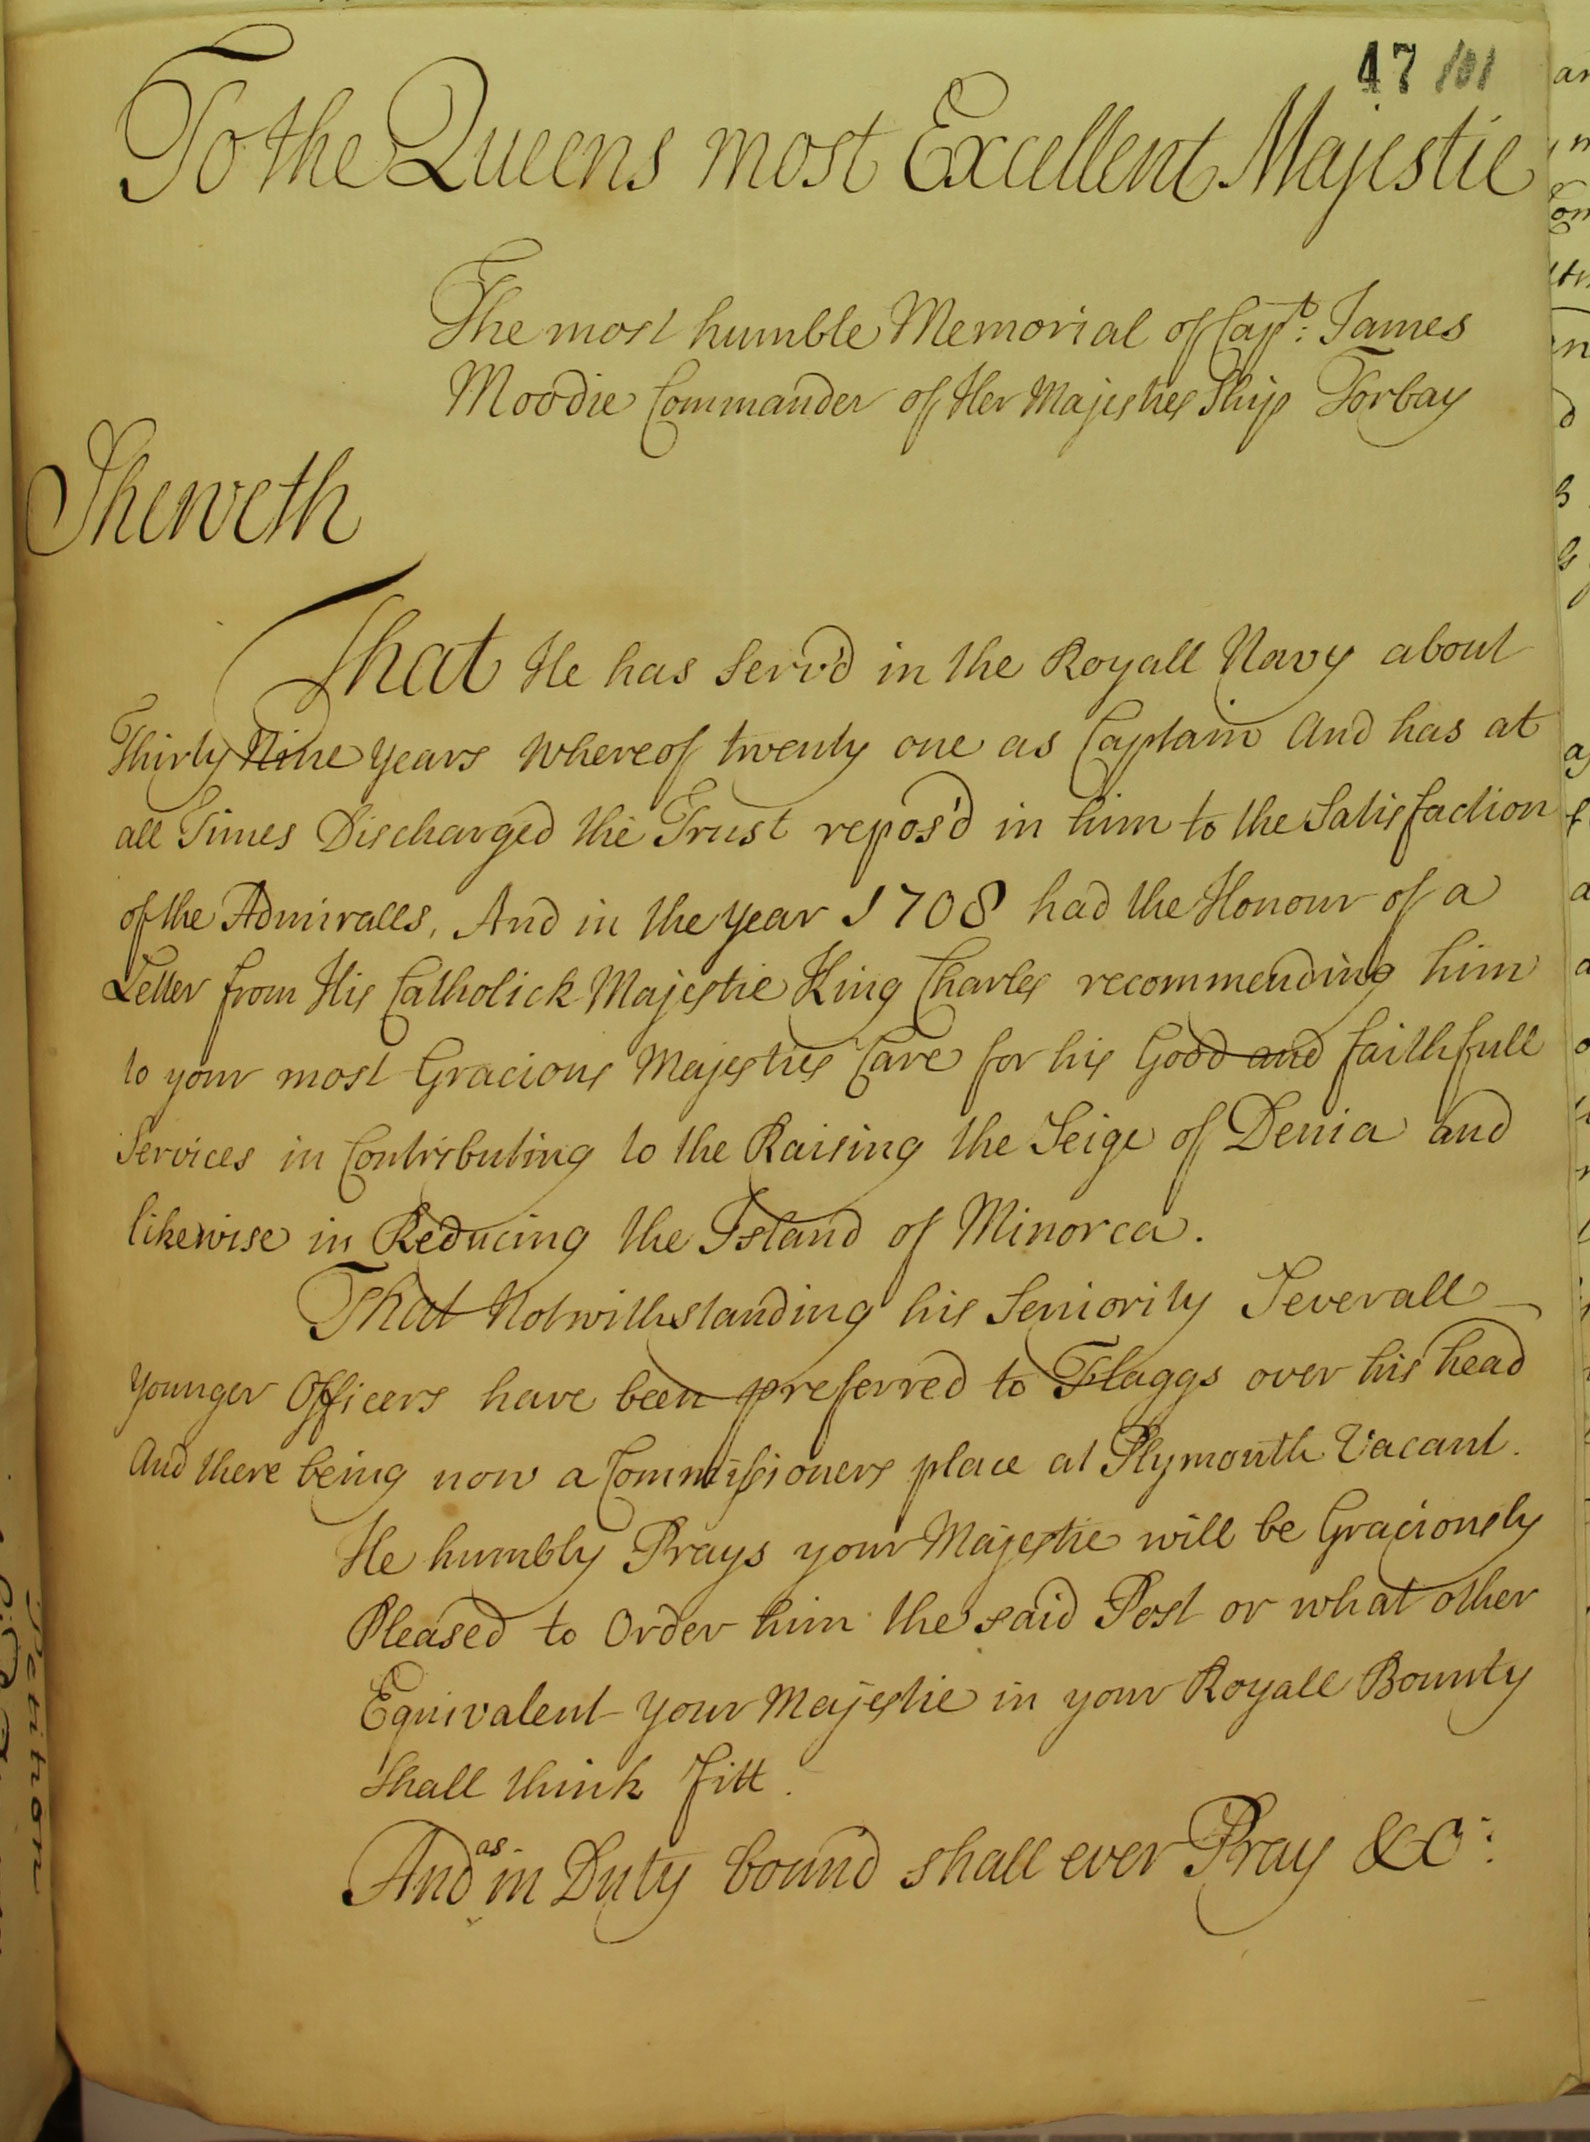 47 101
To the Queens most Excellent Majestie
The most humble Memorial of Capt: James
Moodie Commander of Her Majesties Ship Torbay
Sheweth
That He has Serv'd in the Royall Navy about
Thirty Nine years Whereof twenty one as Captain And has at
all Times Discharged the Trust repos'd in him to the Satisfaction
of the Admiralls, And in the year 1708 had the Honour of a
Letter from His Catholick Majestie King Charles recommending him
to your most Gracious Majesties Care for his Good and faithfull
Services in Contributing to the Raising the Seige of Denia and
likewise in Reducing the Island of Minorca.
That Notwithstanding his Seniority Severall
younger Officers have been preferred to Flaggs over his head
And there being now a Commissioners place at Plymouth Vacant.
He humbly Prays your Majestie will be Graciously
Pleased to Order him the said Post or what other
Equivalent your Majestie in your Royall Bounty
Shall think Fitt.
And as in Duty bound shall ever Pray &c:
Petition